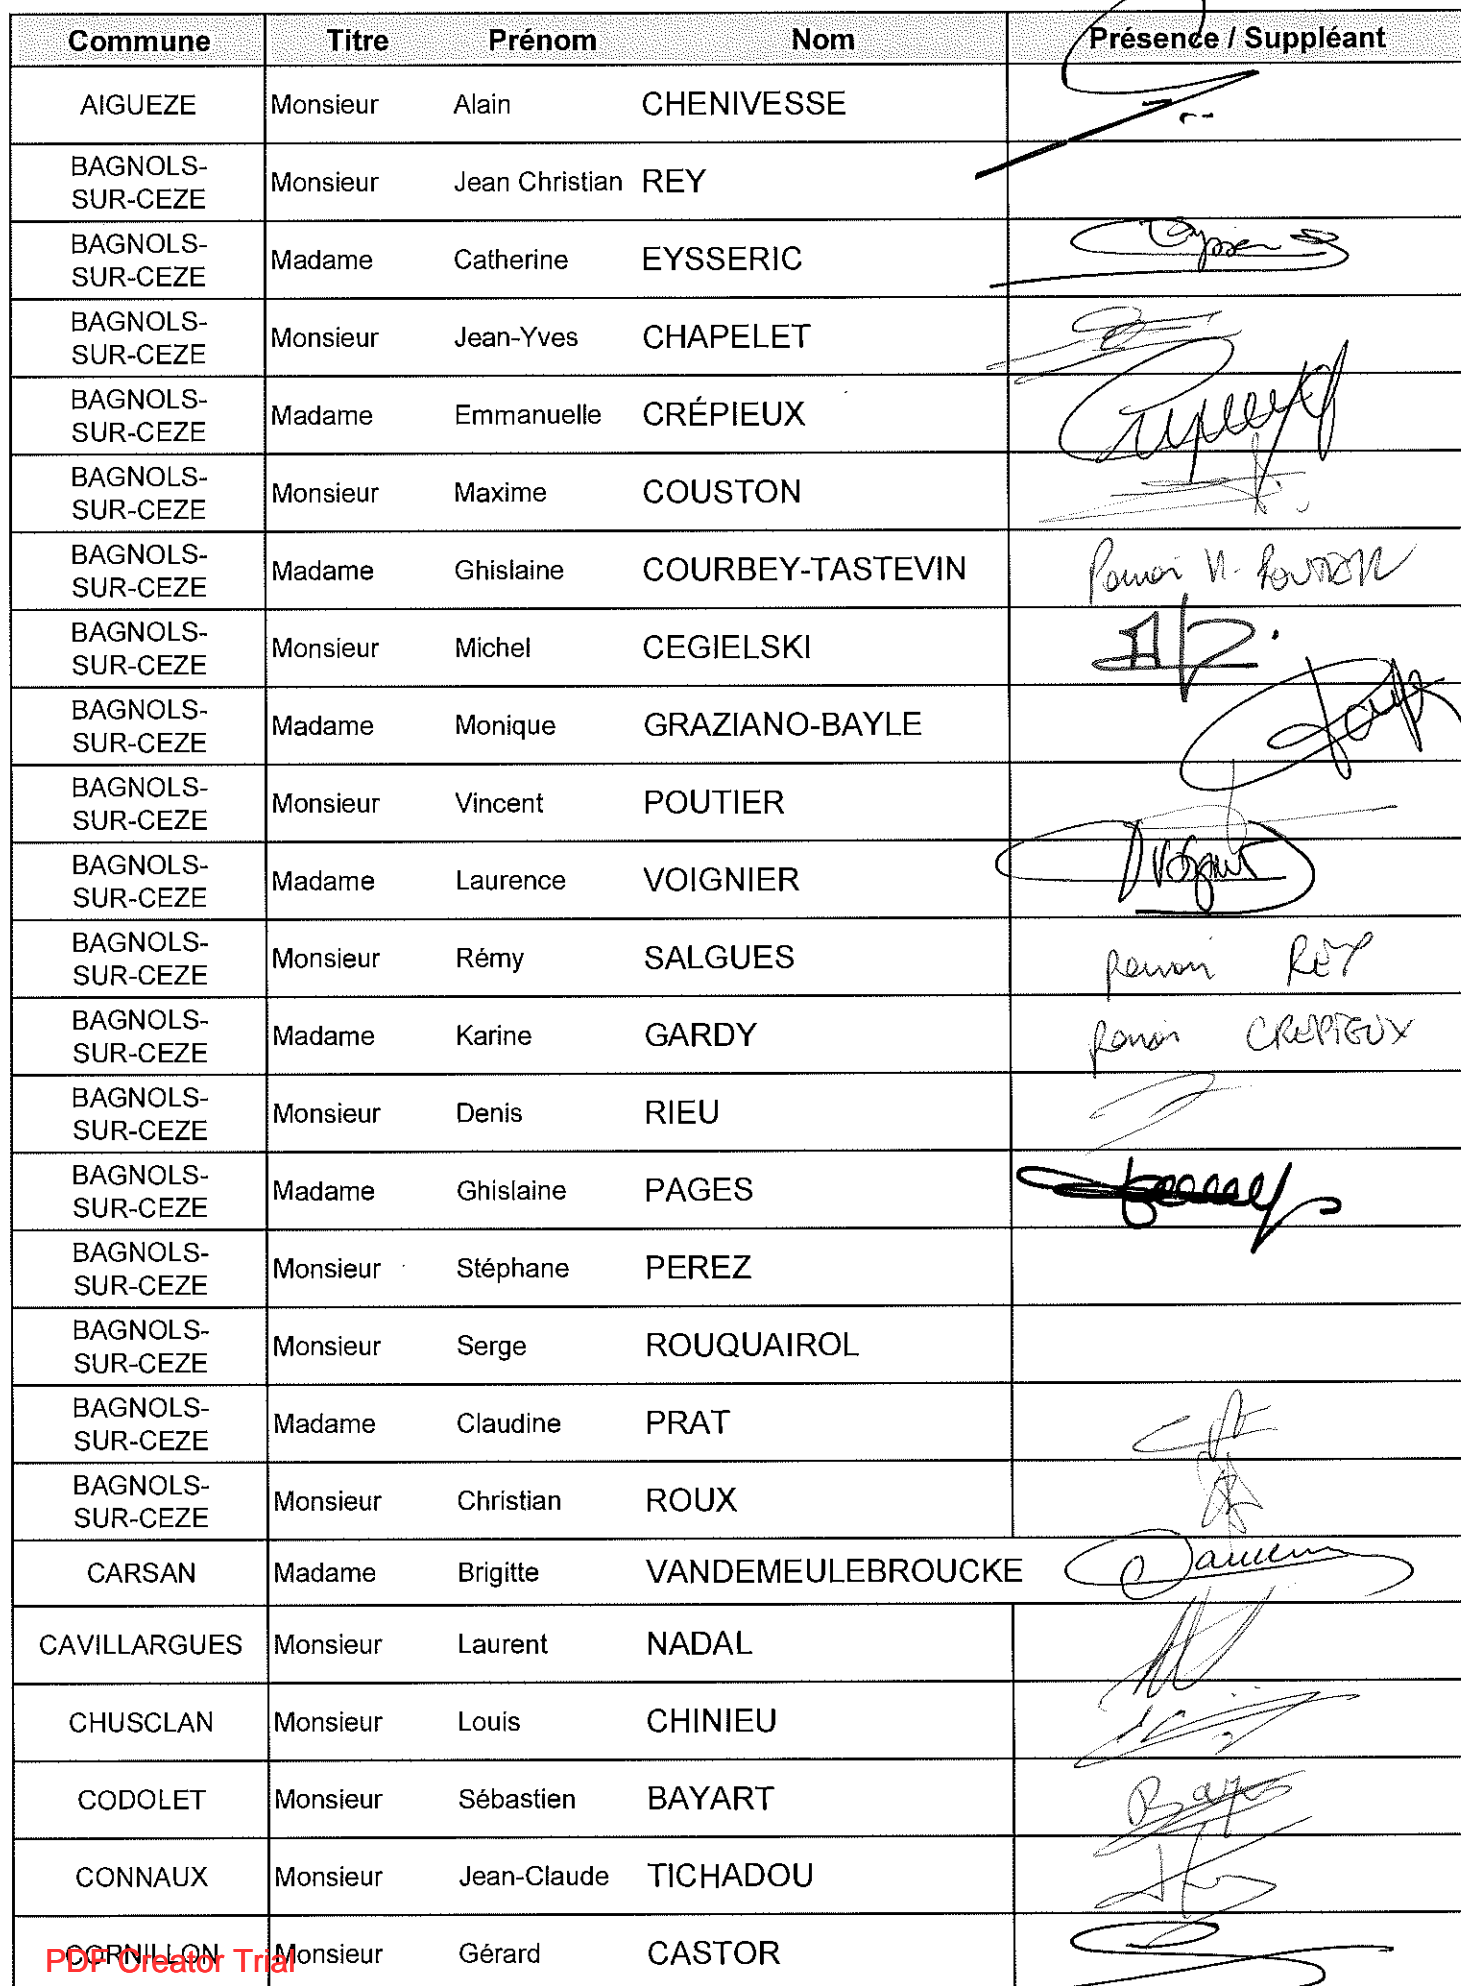 Commune Titre Prénom Nom Présence / Suppléant
AIGUEZE Monsieur Alain CHENIVESSE
BAGNOLS-
SUR-CEZE Monsieur Jean Christian REY
BAGNOLS-
SUR-CEZE Madame Catherine EYSSERIC
BAGNOLS-
SUR-CEZE Monsieur Jean-Yves CHAPELET
BAGNOLS-
SUR-CEZE Madame Emmanuelle CRÉPIEUX
BAGNOLS-
SUR-CEZE Monsieur Maxime COUSTON
BAGNOLS-
SUR-CEZE Madame Ghislaine COURBEY-TASTEVIN
BAGNOLS-
SUR-CEZE Monsieur Michel CEGIELSKI
BAGNOLS-
SUR-CEZE Madame Monique GRAZIANO-BAYLE
BAGNOLS-
SUR-CEZE Monsieur Vincent POUTIER
BAGNOLS-
SUR-CEZE Madame Laurence VOIGNIER
BAGNOLS-
SUR-CEZE Monsieur Rémy SALGUES pouvoir REY
BAGNOLS-
SUR-CEZE Madame Karine GARDY pouvoir CREPIEUX
BAGNOLS-
SUR-CEZE Monsieur Denis RIEU
BAGNOLS-
SUR-CEZE Madame Ghislaine PAGES
BAGNOLS-
SUR-CEZE Monsieur Stéphane PEREZ
BAGNOLS-
SUR-CEZE Monsieur Serge ROUQUAIROL
BAGNOLS-
SUR-CEZE Madame Claudine PRAT
BAGNOLS-
SUR-CEZE Monsieur Christian ROUX
CARSAN Madame Brigitte VANDEMEULEBROUCKE
CAVILLARGUES Monsieur Laurent NADAL
CHUSCLAN Monsieur Louis CHINIEU
CODOLET Monsieur Sébastien BAYART
CONNAUX Monsieur Jean-Claude TICHADOU
CORNILLON Monsieur Gérard CASTOR
PDF Creator Trial